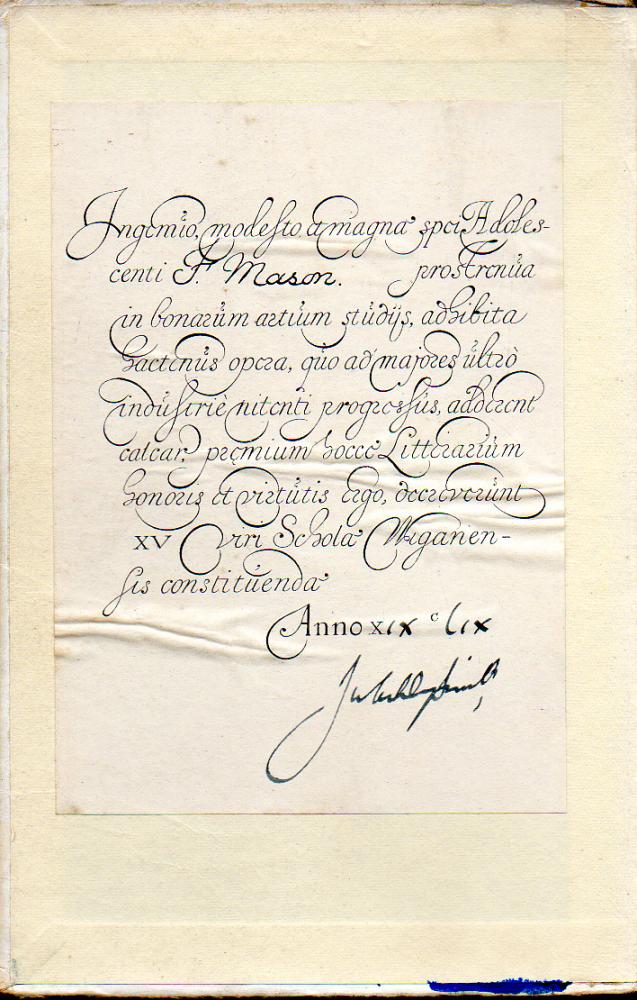 Ingenio, modesto et magnæ spei Adoles-
centi F. Mason. prostrenua
in bonarum artium studijs, adhibita
hactenus opera, quo ad majores ultrò
industriè nitenti progressus, adderent
calcar, premium hocce Litterarium
honoris et virtutis ergo, decreverunt
XV Viri Scholæ Wiganien-
sis constituendæ
Anno xix c lix